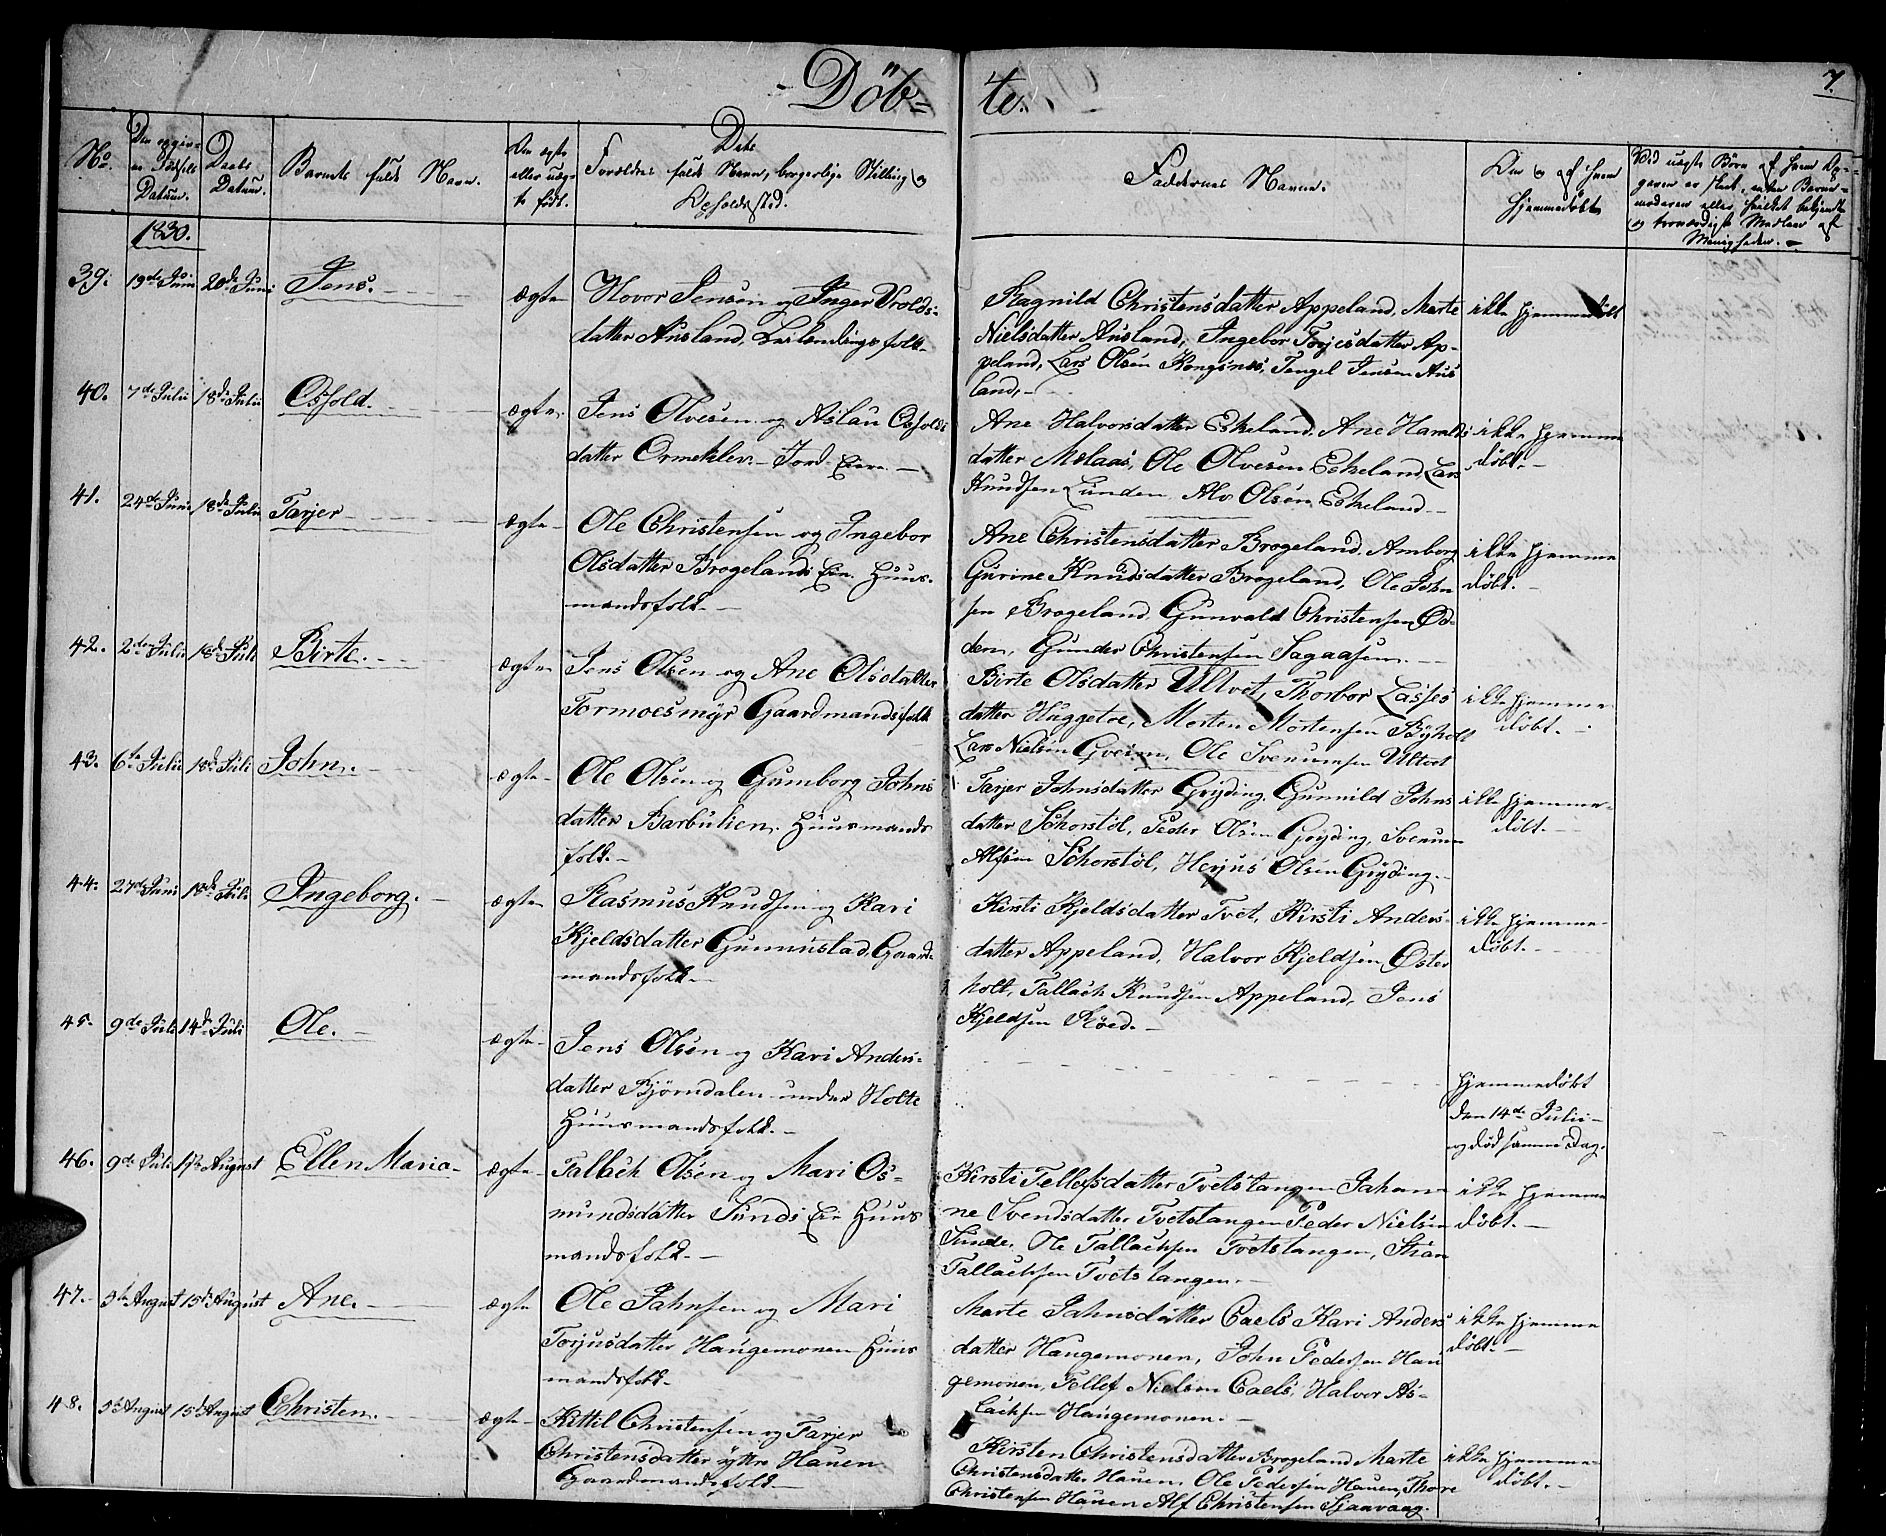 Döb=
te.
7.
No.
Den opgiv-
ne Fødsels
Datum.
Daabs
Datum.
Barnets fulde Navn.
Om ægte
eller uæg-
te født.
Dets
Forældres fulde Navn, borgerlige Stilling og
Opholdssted.
Faddernes Navne.
Om og af hvem
hjemmedøbt
Ved uægte Børn af hvem Op-
gaven er skeet, enten Barne-
moderen eller hvilket bekjendte
og troværdigt Medlem af
Menigheden.
1830.
39. 19de Juni 20de Juni Jens. ægte
Hovor Jensen og Inger Vrolds-
datter Ausland, folk.
Ragnild Christensdatter Appeland, Marte
Nielsdatter Ausland, Ingebor Torjesdatter Ap-
peland, Lars Olsen Kongsnes, Tengel Jensen Aus
land,
ikke hjemmedøbt
40. 7de Julii 18de Julii Osfold. ægte
Jens Olvesen og Aslau Osfolds
datter Ormeklev. Jord Eier
Ane Halvorsdatter Eskeland, Ane Haralds
datter Molaas, Ole Olvesen Eskeland, Lars
Knudsen Lunden, Alv Olsen Eskeland
ikke hjemme
døbt.
41. 24de Juni 18de Julii Tarjer ægte
Ole Christensen og Ingebor
Olsdatter Brogelands Eie. Huus-
mandsfolk.
Ane Christensdatter Brogeland, Amborg
Gurine Knudsdatter Brogeland, Ole John
sen Brogeland, Gunvald Christensen Ød-
den, Gunder Christensen Sagaasen.
ikke hjemme
døbt.
42. 2den Julii 18de Juli Birte. ægte
Jens Olsen og Ane Olsdatter
Tormoesmyr Gaardmandsfolk
Birte Olsdatter Ultvet, Thorbor Lasses
datter Huggetoe, Morten Mortensen Byholt
Lars Nielsen Gveion, Ole Svenumsen Ultvet
ikke hjemme-
døbt.
43. 6te Julii 18de Juli John. ægte
Ole Olsen og Gumborg Johns
datter Barbulien. Huusmands
folk.
Tarjer Johnsdatter Gryding, Gunnild Johns
datter Schorstöl, Peder Olsen Gryding, Svenum
Alfsen Schorstöl, Herjus Olsen Gryding.
ikke hjemme-
døbt.
44. 27de Juni 18de Juli Ingeborg. ægte
Rasmus Knudsen og Kari
Kjeldsdatter Gumustad, Gaard-
mandsfolk
Kirsti Kjeldsdatter Tvet, Kirsti Anders-
datter Appeland, Halvor Kjeldsen Øster
holt, Tallach Knudsen Appeland, Jens
Kjeldsen Röed.
ikke hjemme-
døbt.
45. 9de Juli 14de Juli Ole. ægte
Jens Olsen og Kari Anders-
datter Björndalen under Holte
Huusmandsfolk.
hjemmedøbt
den 14de Julii
og død samme Dag.
46. 9de Juli August Ellen Maria ægte
Tallach Olsen og Mari Os-
mundsdatter Sunds Eie Huus
mandsfolk.
Kirsti Tellefsdatter Tvetstangen Johan-
ne Svendsdatter Tvetstangen Peder Nielsen
Sunde, Ole Tallachsen Tvetstangen, Stian
Tallachsen Tvetstangen.
ikke hjemme
døbt.
47. 5te August 15de August Ane. ægte
Ole Jahnsen og Mari
Torjusdatter Haugemonen Huus
mandsfolk.
Marte Jahnsdatter Caels Kari Anders
datter Haugemonen, John Pedersen Hau
gemonen, Tellef Nielsen Caels, Halvor As-
lachsen Haugemonen.
ikke hjemme
døbt.
48. 5te August 15de August Christen. ægte
Kittil Christensen og Tarjer
Christensdatter yttre Hauen
Gaardmandsfolk
Kirsten Christensdatter Brogeland Marte
Christensdatter Hauen, Ole Pedersen Hauen, Thore
Christensen Hauen Alf Christensen Sjaavaag.
ikke hjemme-
døbt.